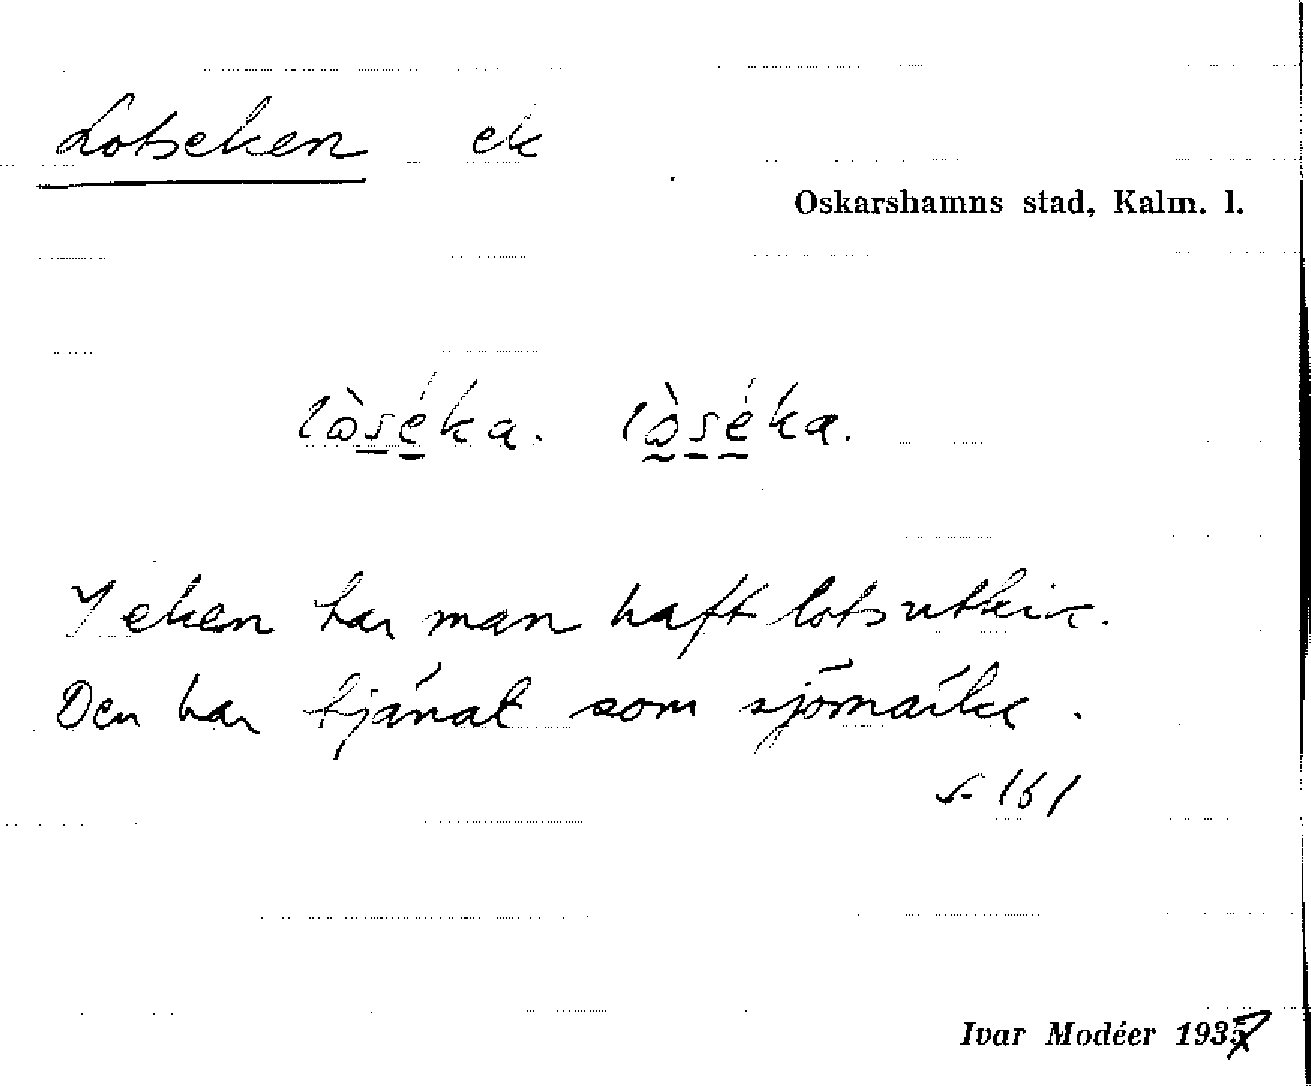 Lotseken ek
Oskarshamns stad, Kalm. l.
lòséka. lòséka.
I eken har man haft lotsutkik.
Den har tjänat som sjömärke.
s. 161
Ivar Modéer 1937